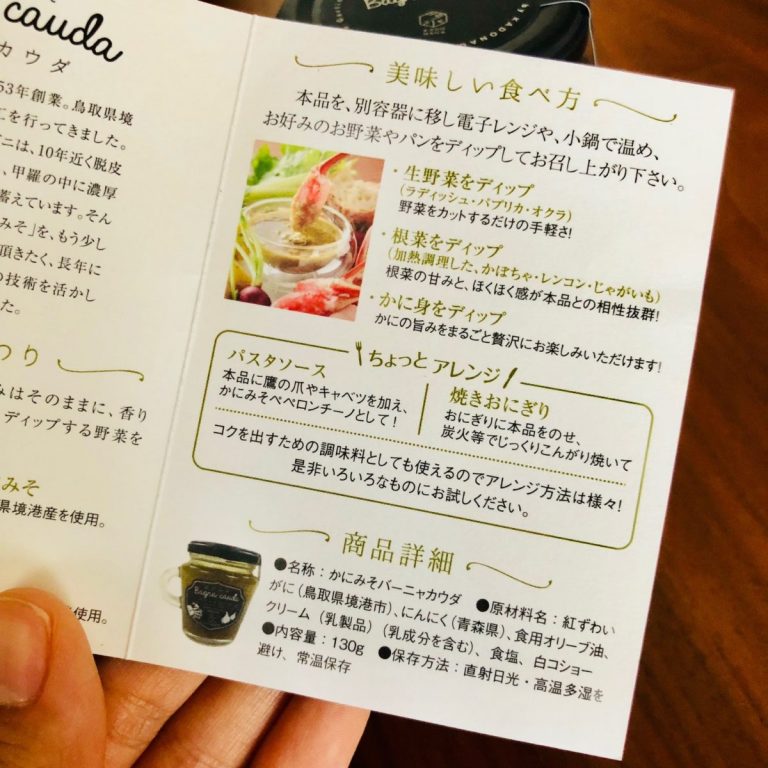 cauda
カウダ
53年創業。鳥取県境
工を行ってきました。
ニは、10年近く脱皮
、甲羅の中に濃厚
蓄えています。そん
みそ」を、もう少し
頂きたく、長年に
の技術を活かし
た。
つり
みはそのままに、香り
ディップする野菜を
みそ
県境港産を使用。
を使用。
美味しい食べ方
本品を、別容器に移し電子レンジや、小鍋で温め、
お好みのお野菜やパンをディップしてお召し上がり下さい。
・生野菜をディップ
(ラディッシュ・パプリカ・オクラ)
野菜をカットするだけの手軽さ!
・根菜をディップ
(加熱調理した、かぼちゃ・レンコン・じゃがいも)
根菜の甘みと、ほくほく感が本品との相性抜群!
・かに身をディップ
かにの旨みをまるごと贅沢にお楽しみいただけます!
ちょっとアレンジ
パスタソース
本品に鷹の爪やキャベツを加え、
かにみそペペロンチーノとして!
焼きおにぎり
おにぎりに本品をのせ、
炭火等でじっくりこんがり焼いて
コクを出すための調味料としても使えるのでアレンジ方法は様々!
是非いろいろなものにお試しください。
商品詳細
●名称:かにみそバーニャカウダ ●原材料名:紅ずわい
がに(鳥取県境港市)、にんにく(青森県)、食用オリーブ油、
クリーム(乳製品)(乳成分を含む)、食塩、白コショー
●内容量:130g ●保存方法:直射日光・高温多湿を
避け、常温保存
Bagna cauda